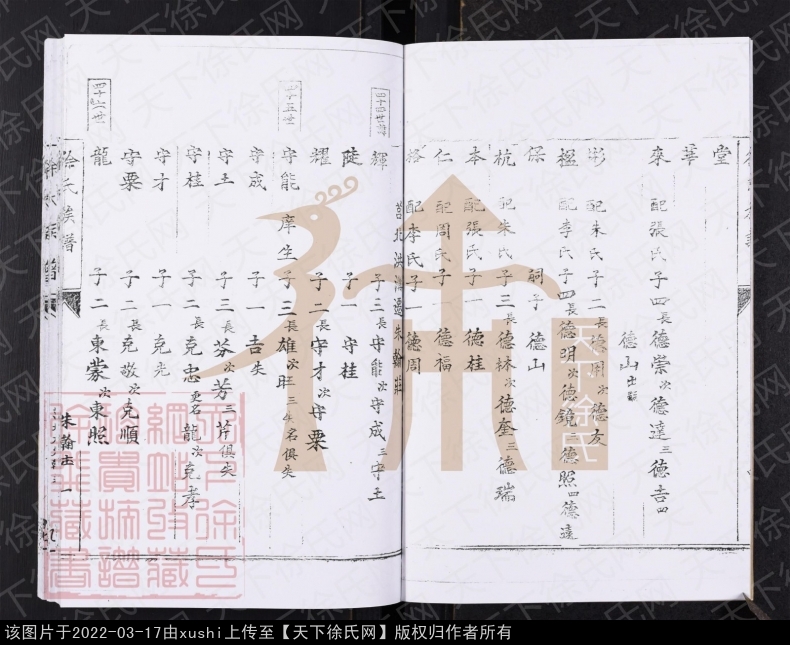 堂
華
來 配張氏 子四 長德崇 次德達 三德吉 四
德山 出嗣
彬 配朱氏 子二 長德 次德友
楹 配李氏 子四 長德明 次德鏡 德照 四德遠
保 嗣子 德山
杭 配朱氏 子三 長德林 次德奎 三德瑞
本 配張氏 子一 德桂
仁 配周氏 子一 德福
配李氏 子一 德周
莒北洪 邊朱翰莊
四十四世
輝 子三 長守能 次守成 三守土
陡 子一 守桂
耀 子二 長守才 次守粟
四十五世
守能 庠生 子三 長雄 次旺 三失名俱失
守成 子一 吉失
守土 子三 長芬 次芳 三芹俱失
守桂 子二 長克忠 更名龍 次克孝
守才 子一 克光
守粟 子二 長克敬 次克順
四十六世
龍 子二 長東蒙 次東照
徐氏族譜
朱翰莊 一
天下徐氏
天下徐氏网
该图片于2022-03-17由xushi上传至【天下徐氏网】版权归作者所有